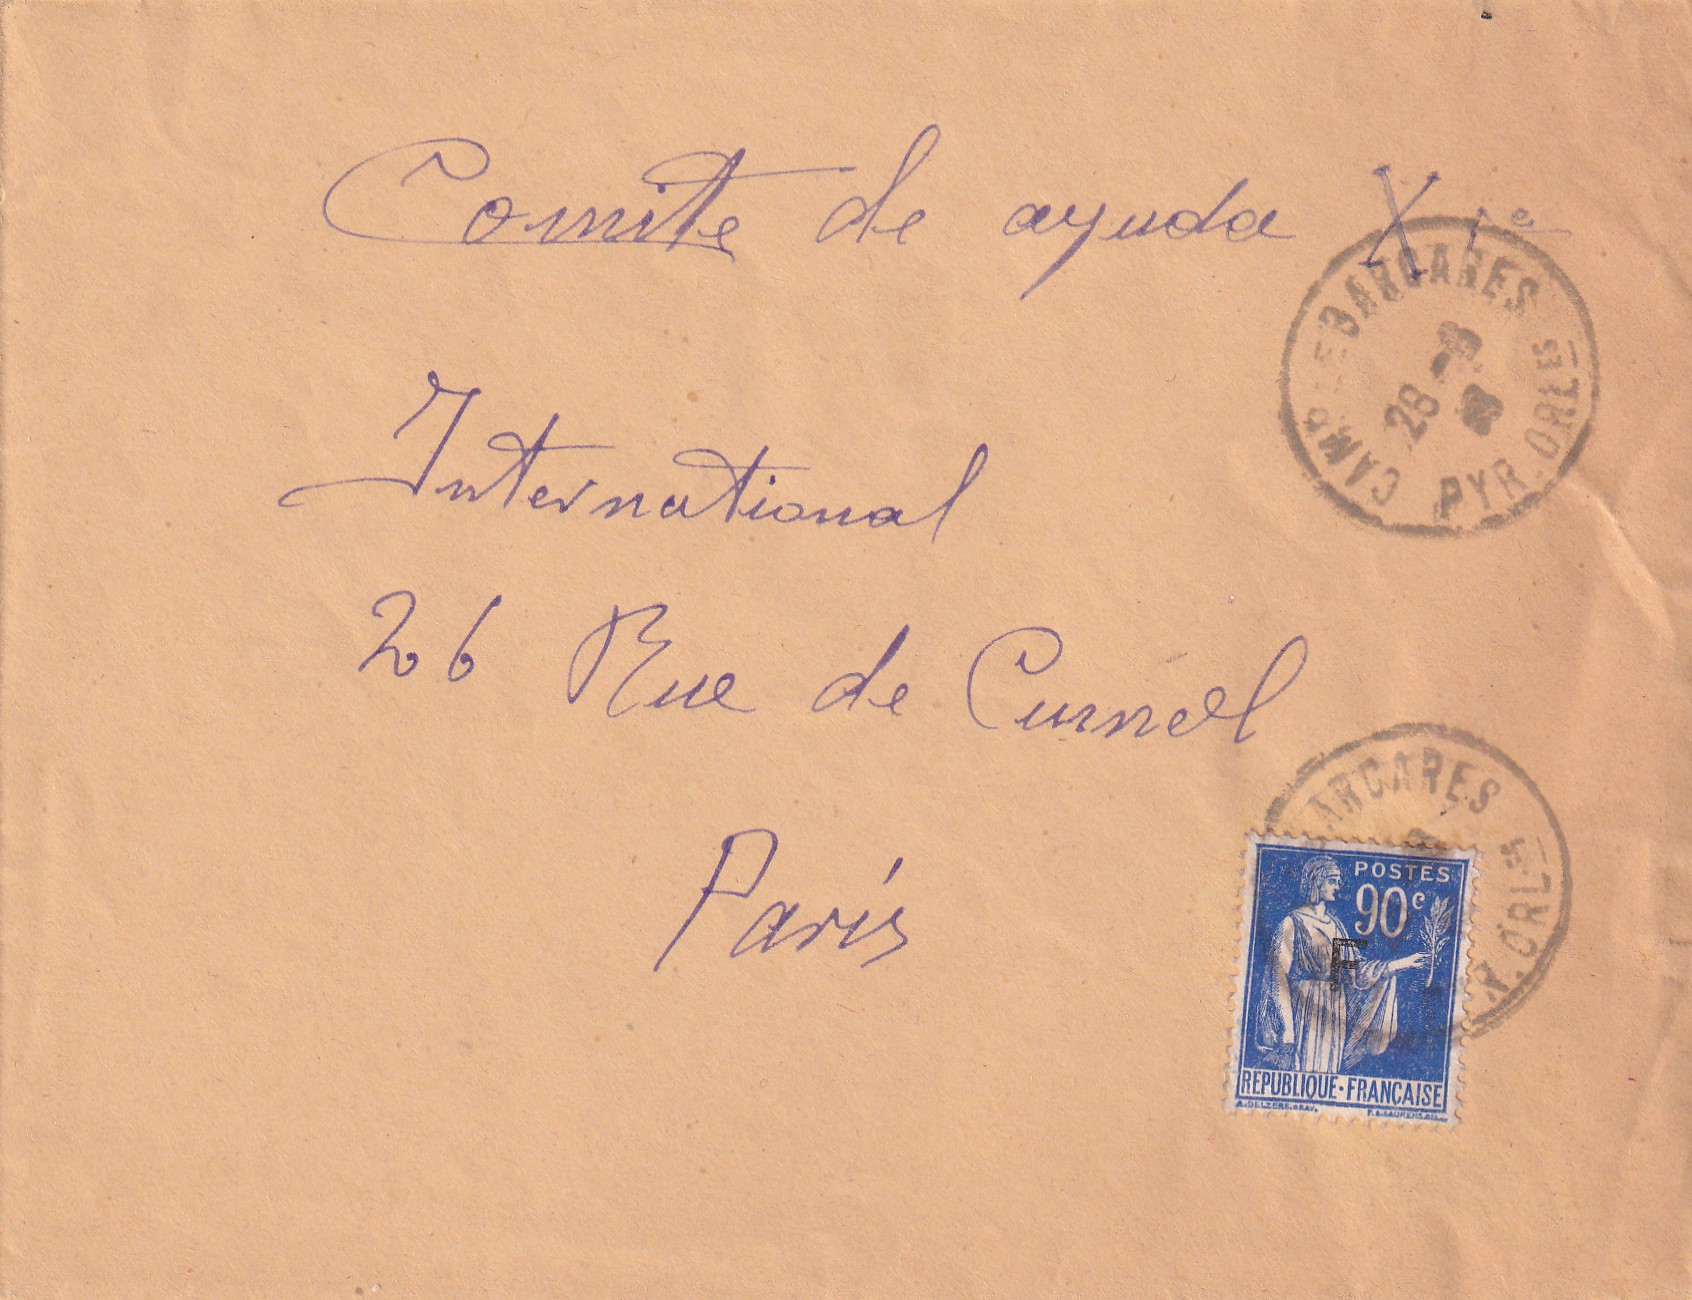 Comite de ayuda X 1e
International
26 Rue de Curnell
París
CAMP LE BARCARES
28
PYR. ORLES
ARCARES
R. ORLES
POSTES
90c
F
REPUBLIQUE·FRANÇAISE
A. DELZERS. GRAV.